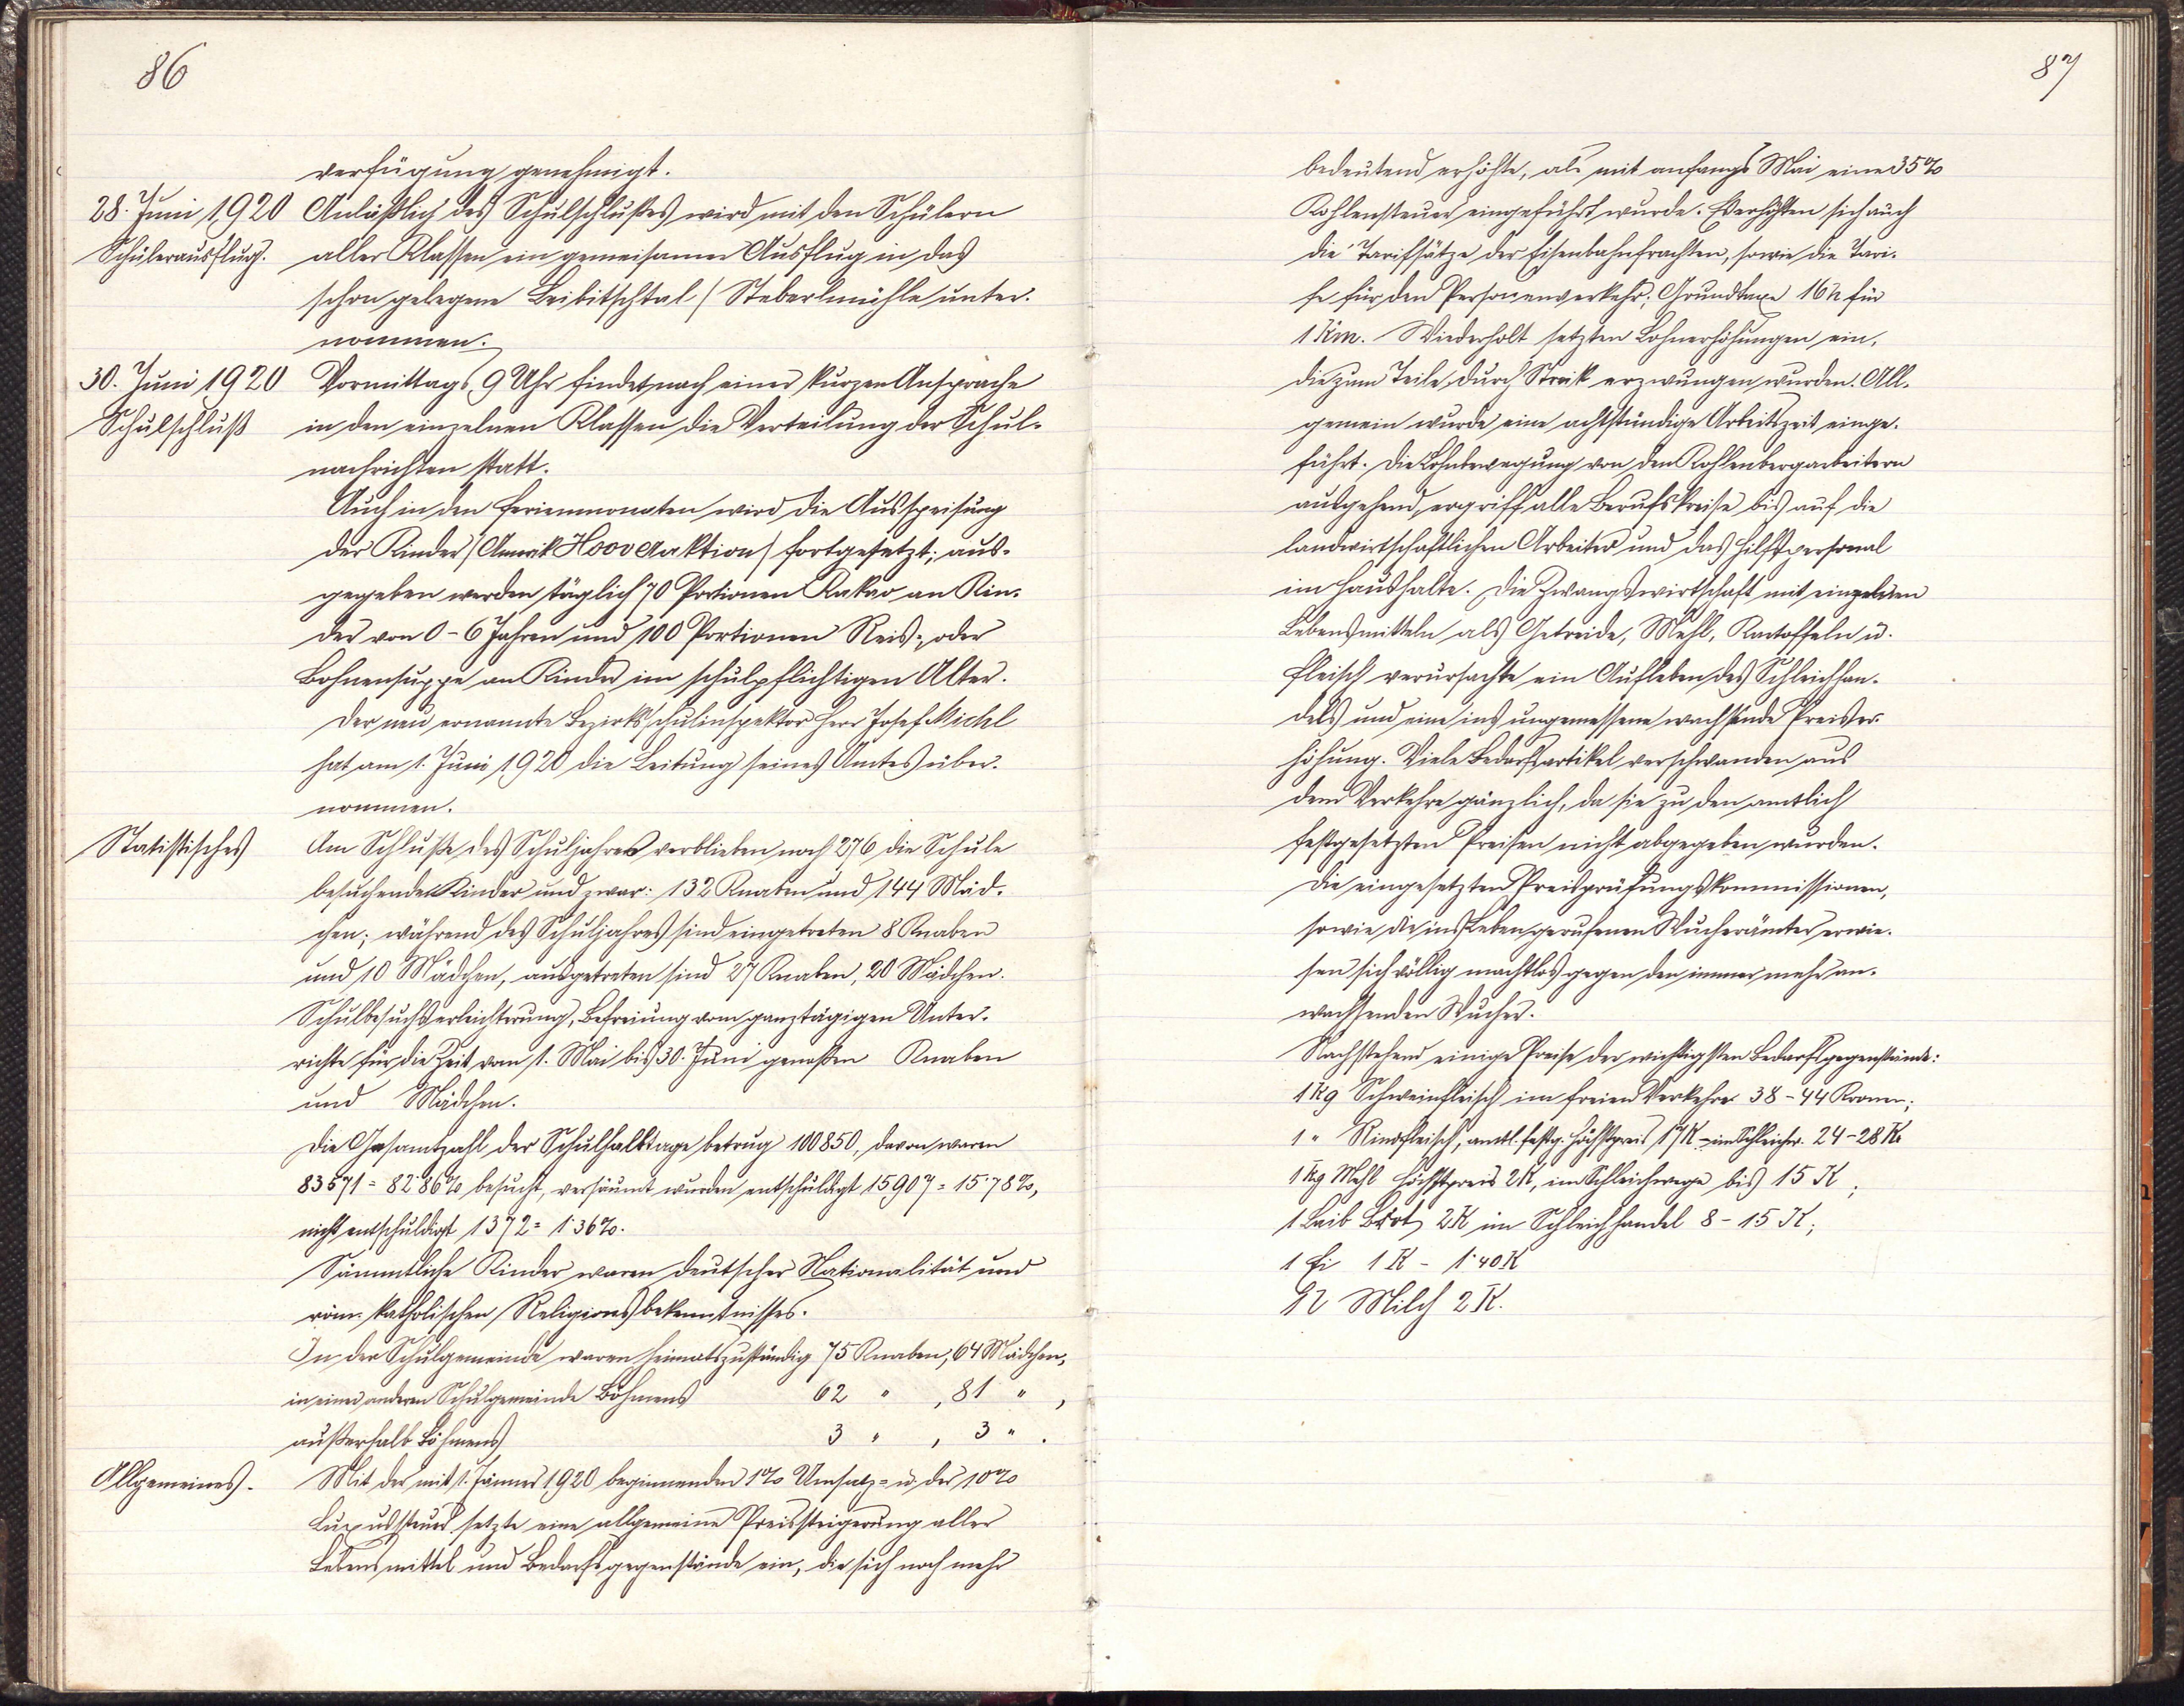 86
verfügung genehmigt.
28. Juni 1920 Anläßlich des Schulschlußes wird mit den Schülern
Schülerausflug. aller Klassen ein gemeinsamer Ausflug in das
schon gelegene Leibitschtal (Steberlmühle unter-
nommen.
30. Juni 1920 Vormittags 9 Uhr findet nach einer kurzen Ansprache
Schulschluß in den einzelnen Klassen die Verteilung der Schul-
nachrichten statt.
Auch in den Ferienmonaten wird die Ausspeisung
der Kinder (Amerik Hoover Aktion) fortgesetzt; aus-
gegeben werden täglich 70 Portionen Kakao an Kin-
der von 0-6 Jahren und 100 Portionen Reis-, oder
Bohnensuppe an Kinder im schulpflichtigen Alter.
Der neu ernannte Bezirksschulinspektor Herr Josef Michl
hat am 1. Juni 1920 die Leitung seines Amtes über-
nommen.
Statistisches Am Schluße des Schuljahres verblieben noch 276 die Schule
besuchende Kinder und zwar: 132 Knaben und 144 Mäd-
chen; während des Schuljahres sind eingetreten 8 Knaben
und 10 Mädchen, ausgetreten sind 27 Knaben, 20 Mädchen.
Schulbesuchserleichterung, Befreiung vom ganztägigen Unter-
richte für die Zeit vom 1. Mai bis 30. Juni genoßen Knaben
und Mädchen.
Die Gesamtzahl der Schulhalbtage betrug 100850, davon waren
83571 = 82·86% besucht, versäumt wurden entschuldigt 15907 = 15·78%,
nicht entschuldigt 1372 = 1·36%.
Sämmtliche Kinder waren deutscher Nationalität und
röm. katholischen Religionsbekenntnisses.
In der Schulgemeinde waren heimatszuständig 75 Knaben, 64 Mädchen,
in einer anderen Schulgemeinde Böhmens 62 " , 81 " ,
außerhalb Böhmens 3 " , 3 " .
Allgemeines. Mit der mit 1. Jänner 1920 beginnenden 1% Umsatz- u. der 10%
Luxussteuer setzte eine allgemeine Preissteigerung aller
Lebensmittel und Bedarfsgegenstände ein, die sich noch mehr
87
bedeutend erhöhte, als mit anfangs Mai eine 35%
Kohlensteuer eingeführt wurde. Es erhöhten sich auch
die Tarifsätze der Eisenbahnfrachten, sowie die Tari-
fe für den Personenverkehr; Grundtaxe 16 h für
1 Km. Wiederholt setzten Lohnerhöhungen ein,
die zum Teile durch Streik erzwungen wurden. All-
gemein wurde eine achtstündige Arbeitszeit einge-
führt. Die Lohnbewegung von den Kohlenbergarbeitern
ausgehend, ergriff alle Berufskreise bis auf die
landwirtschaftlichen Arbeiter und das Hilfspersonal
im Haushalte. Die Zwangswirtschaft mit einzelnen
Lebensmitteln als Getreide, Mehl, Kartoffeln u.
Fleisch verursachte ein Aufleben des Schleichhan-
dels und eine ins ungemessene wachsende Preiser-
höhung. Viele Bedarfsartikel verschwanden aus
dem Verkehre gänzlich, da sie zu den amtlich
festgesetzten Preisen nicht abgegeben wurden.
Die eingesetzten Preisprüfungskommissionen,
sowie die ins Leben gerufenen Wucherämter erwie-
sen sich völlig machtlos gegen den immer mehr an-
wachsenden Wucher.
Nachstehend einige Preise der wichtigsten Bedarfsgegenstände:
1 kg Schweinfleisch im freien Verkehre 38-44 Kronen;
1 " Rindfleisch, amtl. festg. Höchstpreis 17 K - im Schleichw. 24-28 K.
1 kg Mehl Höchstpreis 2 K, im Schleichwege bis 15 K;
1 Laib Brot 2 K im Schleichhandel 8-15 K;
1 Ei 1 K - 1·40 K
1 l Milch 2 K.